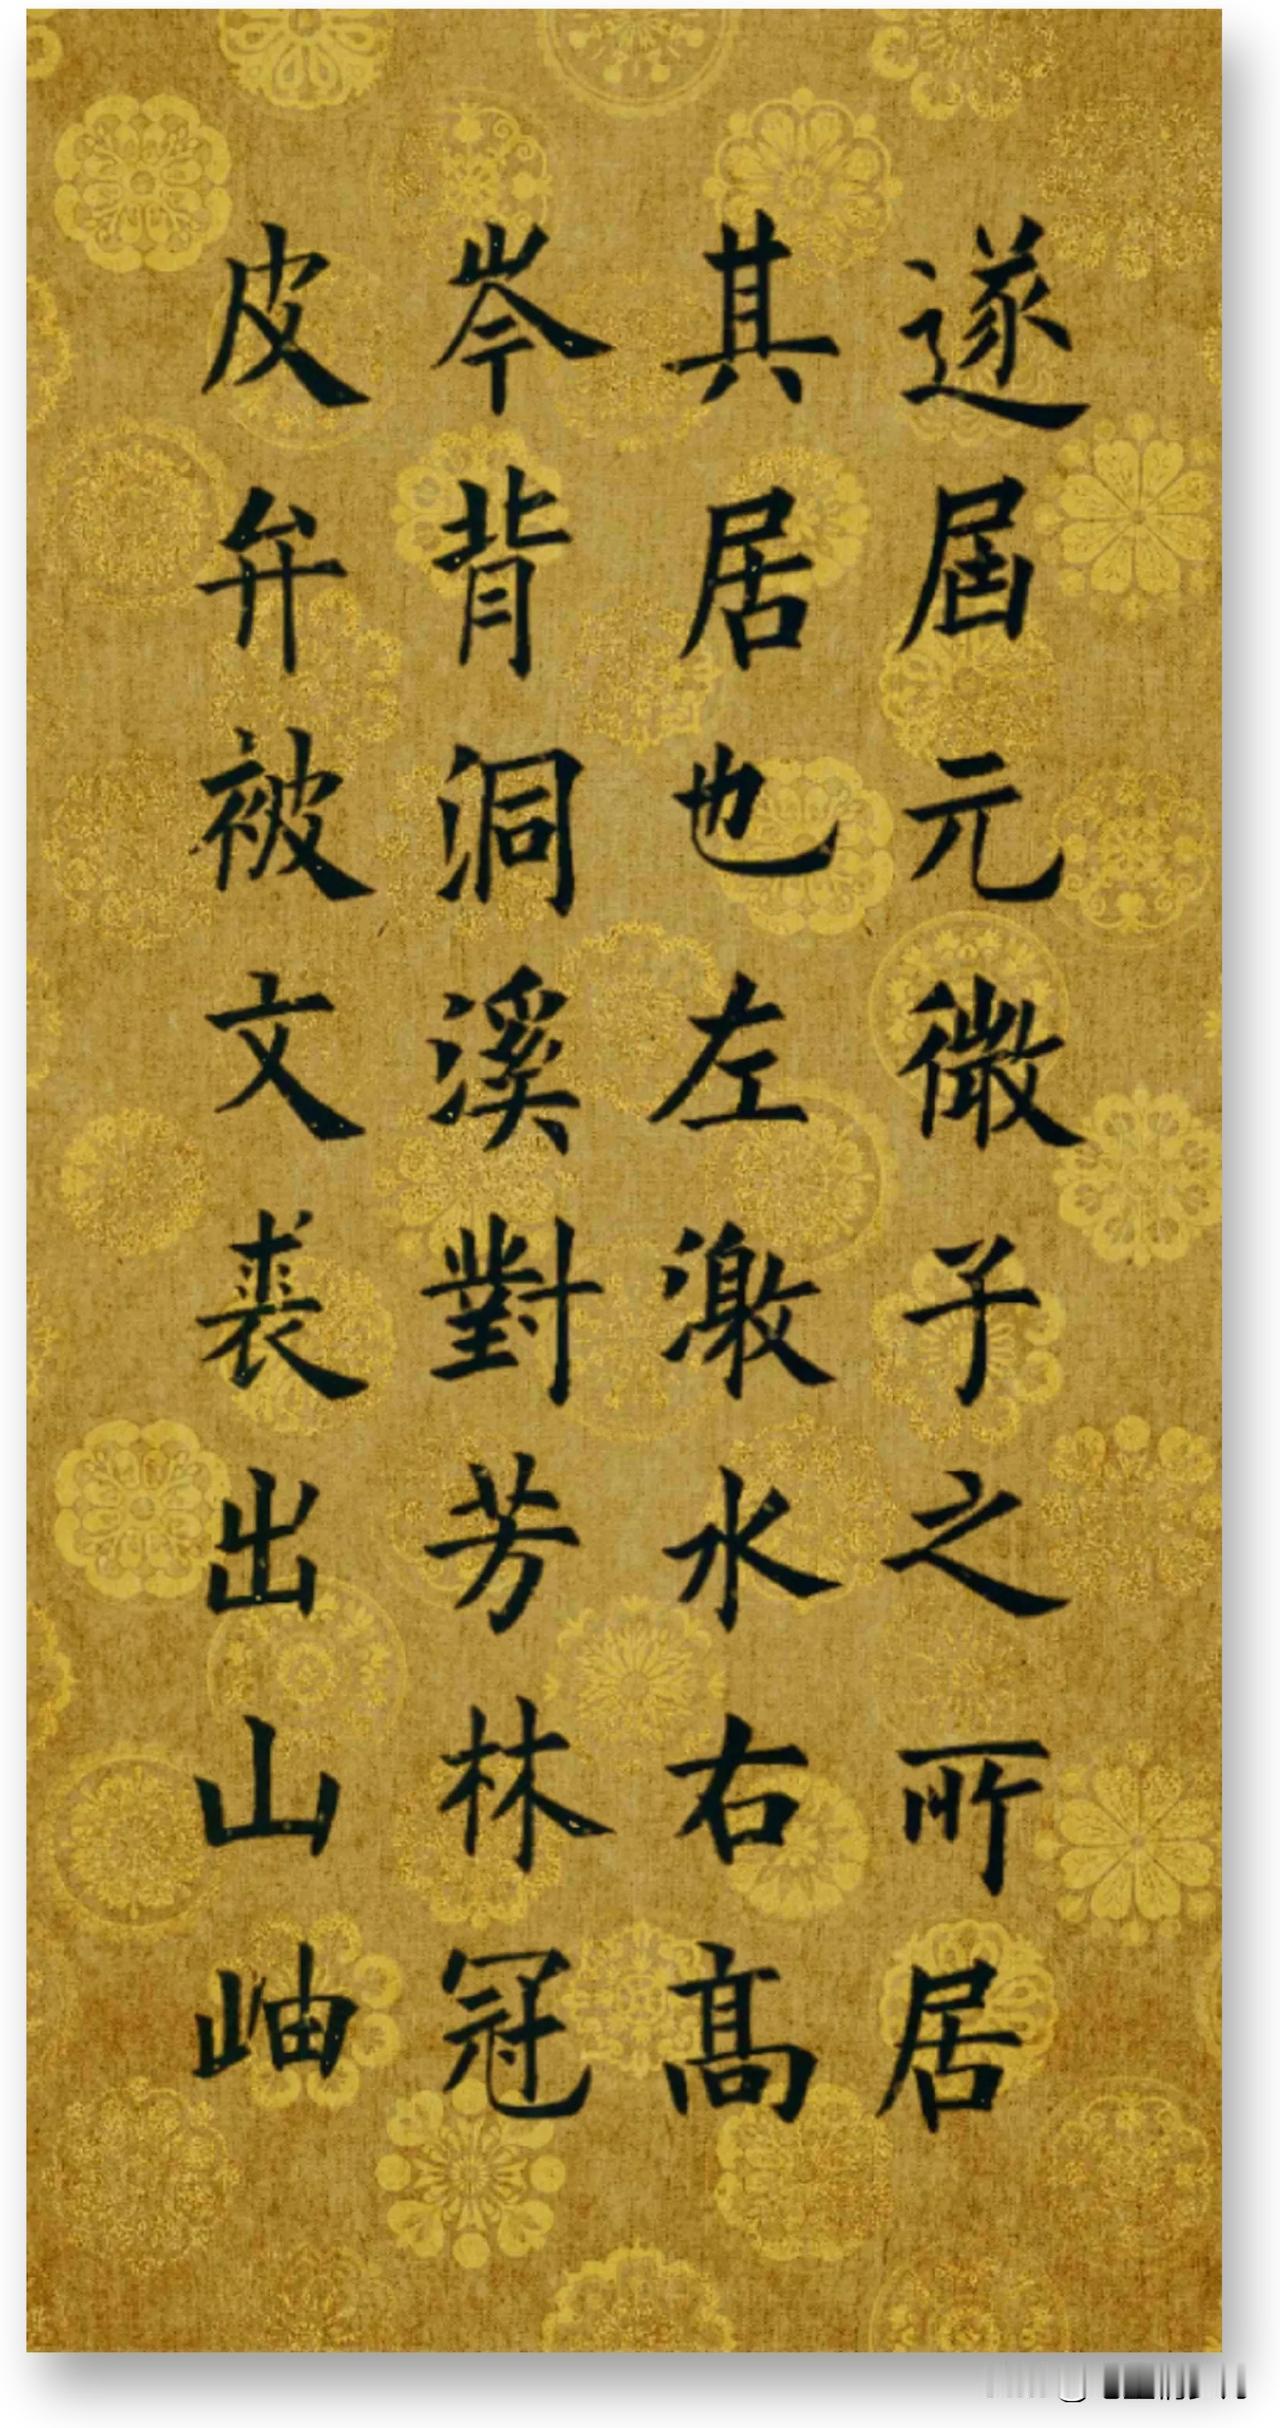 遂屆元微子之所居
其居也左激水右髙
岑背洞溪對芳林冠
皮弁被文裘出山岫